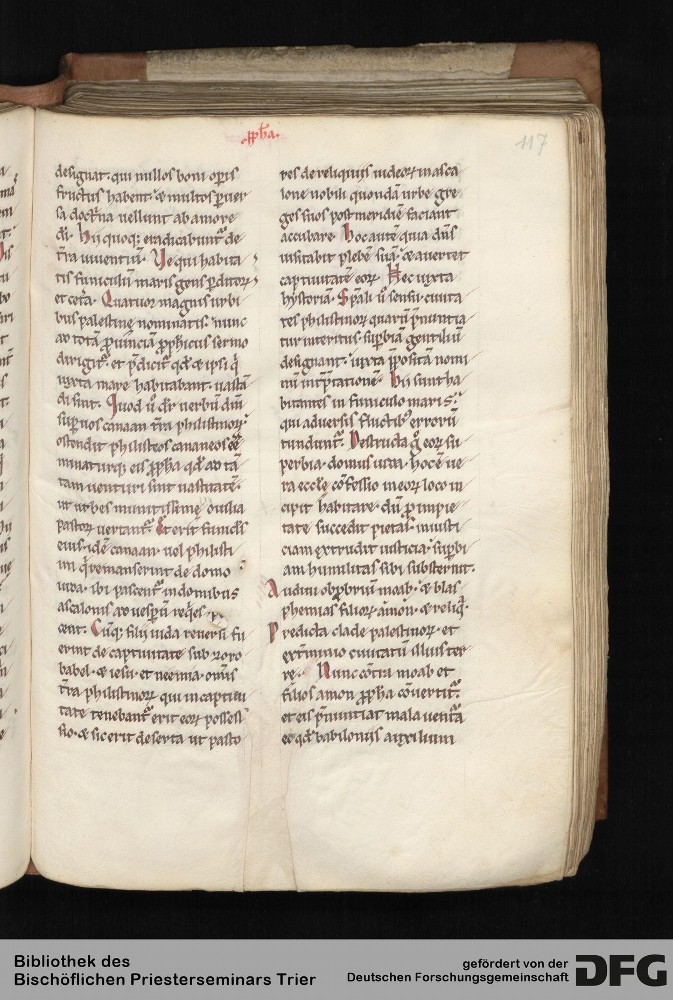 ꝓph̄a.
117
designat. qui nullos boni oꝑis
fructus habent. & multos ꝑuer
sa doct̄na uellunt ab amore
di. Hii quoq; eradicabunt᷑ de
t̄ra uiuentiū. Ve qui habita
tis funiculū maris gens ꝑditoꝝ
et cet̄a. Quatuor magnis urbi
bus palestinę nominatis. nunc
ad totā ꝓuinciā ꝓphicus sermo
dirigit᷑. et p̄dicit qd̄ & ipsi q̄
iuxta mare habitabant. uastā
di sint. Quod ū dr̄ uerbū dnī
suꝑ uos canaan t̄ra philistinoꝝ
ostendit philisteos cananeos ēē
minaturq; eis ꝓph̄a qd̄ ad tā
tam uenturi sint uastitatē.
ut urbes munitissimę ouilia
pastoꝝ uertant᷑. Et erit funicl̄s
eius. idē canaan. uel philisti
im q̄ remanserint de domo
iuda. ibi pascent᷑ in domibus
ascalonis ad uesꝑū req̄es
cent. Cūq; filii iuda reuersi fu
erint de captiuitate sub zoro
babel. & iesu. et neemia. om̄is
t̄ra philistinoꝝ qui in captiui
tate tenebant᷑ erit eoꝝ possess
sio. & sic erit deserta ut pasto
res de reliquiis iudeoꝝ in asca
lone nobili quondā urbe gre
ges suos post meridiē faciant
accubare. Hoc autē quia dn̄s
uisitabit plebē suā. & auertet
captiuitatē eoꝝ. Hec iuxta
hystoriā. Sp̄ali ū sensu. ciuita
tes philistinoꝝ quarū p̄nuntia
tur interitus. suꝑbiā gentiliū
designant. iuxta p̄positā nomi
nū int̄p̄tationē. Hii sunt ha
bitantes in funiculo maris.
qui aduersis fluctib; erroꝝ
tundunt᷑. Destructa g̊ eoꝝ su
perbia. domus iuda. hoc ē ue
ra eccl̄e cōfessio in eoꝝ loco in
cipit habitare. dū ꝓ impie
tate succedit pietas. iniusti
ciam extrudit iusticia. suꝑbi
am humilitas sibi substernit.
Audiui obprobriū moab. & blas
phemias filioꝝ āmon. & reliq̄.
Predicta clade palestinoꝝ. et
ext̄minio ciuitatū illius ter
rę. Nunc cōtra moab et
filios amon ꝓph̄a cōuertit᷑.
et eis p̄nuntiat mala uent̄a
eo qd̄ babilonus auxilium
Bibliothek des
Bischöflichen Priesterseminars Trier
gefördert von der
Deutschen Forschungsgemeinschaft
DFG